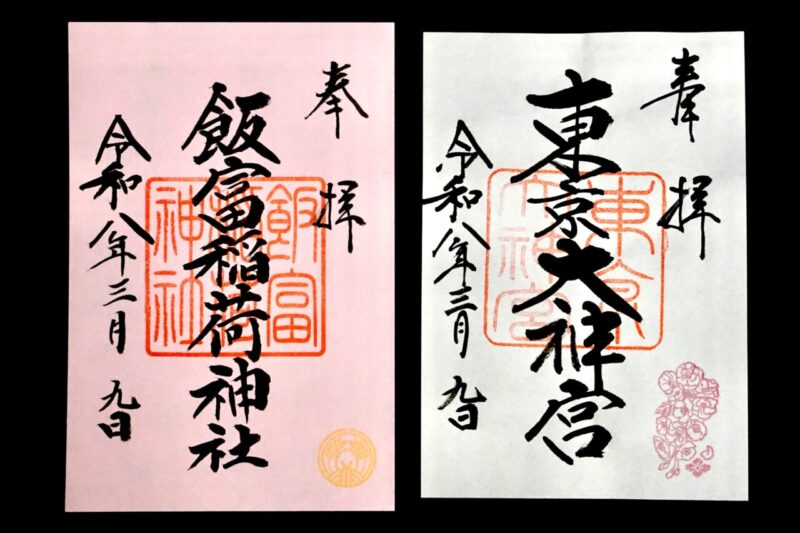 奉拝
飯富稲荷神社
令和八年三月九日
飯富
稲荷
神社
奉拝
東京大神宮
令和八年三月九日
東京
大神宮